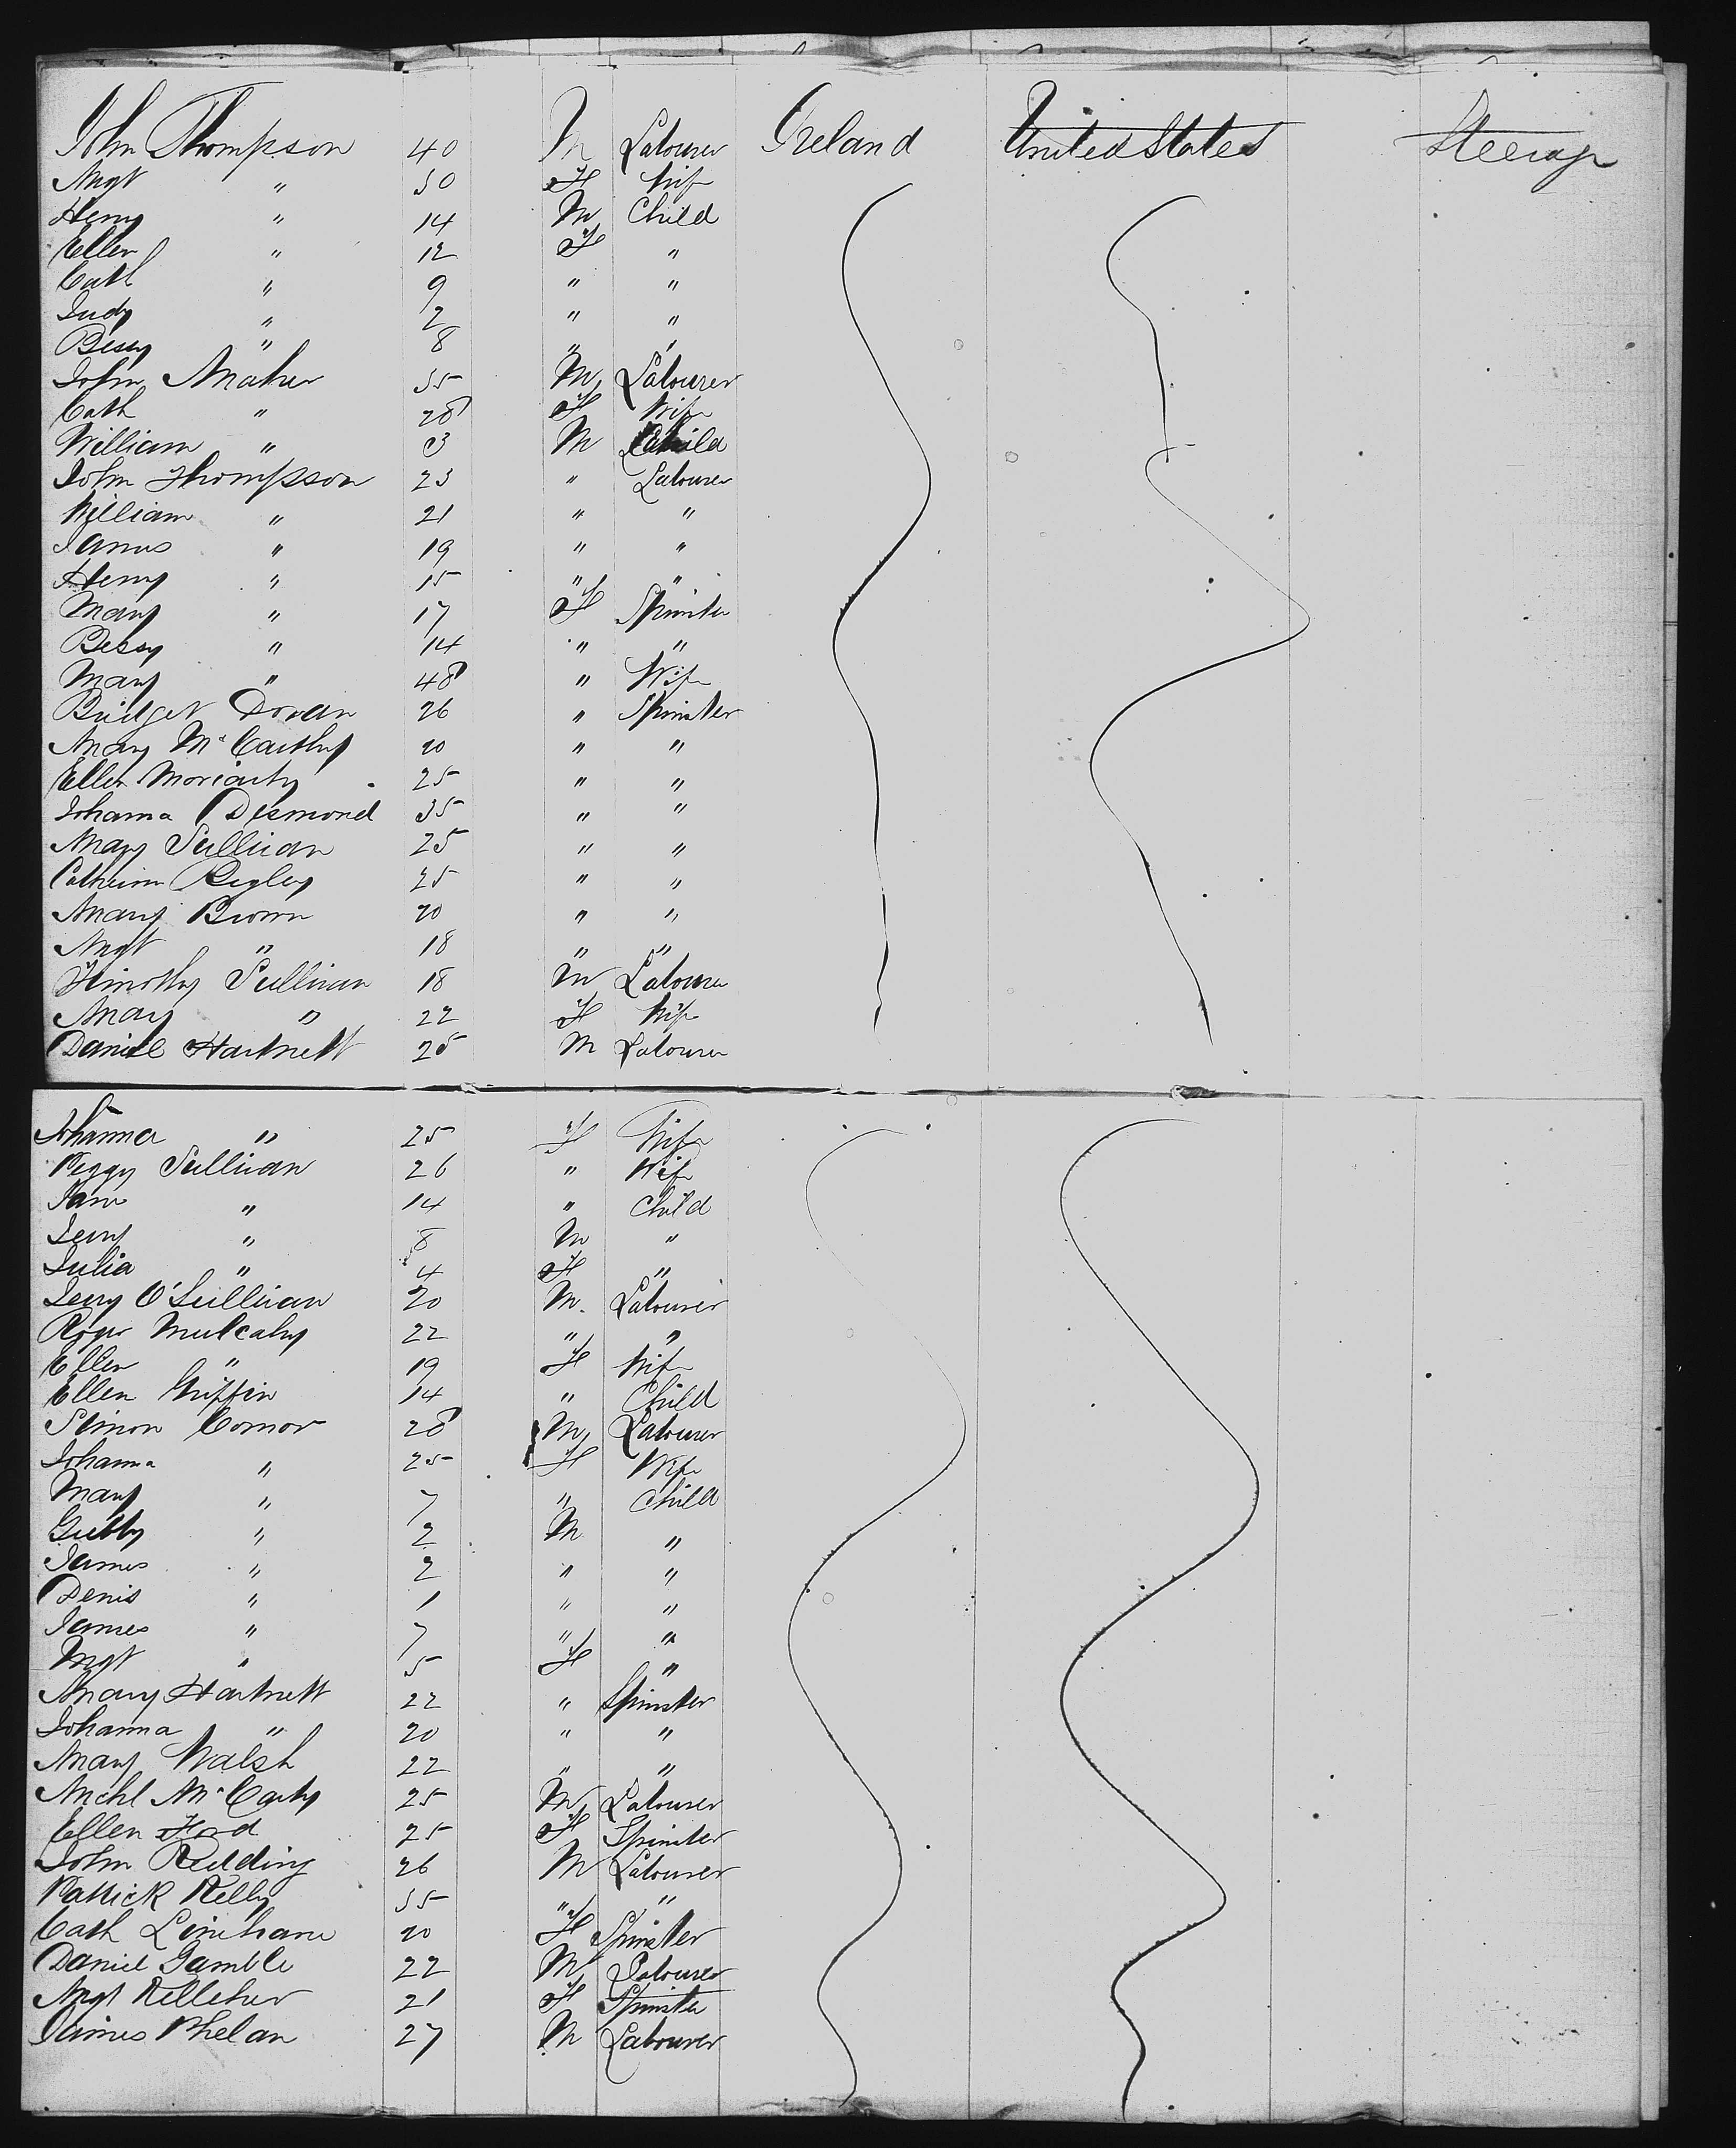 John Thompson 40 M Labourer Ireland United States Steerage
Mgt " 30 F Wife
Henry " 14 M Child
Ellen " 12 F "
Cath " 9 " "
Judy " 2 " "
Bessy " 8 " "
John Maher 35 M Labourer
Cath " 28 F Wife
William " 3 M Child
John Thompson 23 " Labourer
William " 21 " "
James " 19 " "
Henry " 15 " "
Mary " 17 F Spinster
Bessy " 14 " "
Mary " 48 " Wife
Bridget Doran 26 " Spinster
Mary McCarthy 20 " "
Ellen Moriarty 25 " "
Johanna Desmond 35 " "
Mary Sullivan 25 " "
Catherine Begley 25 " "
Mary Brown 20 " "
Mgt " 18 " "
Timothy Sullivan 18 M Labourer
Mary " 22 F Wife
Daniel Hartnett 25 M Labourer
Johanna " 25 F Wife
Peggy Sullivan 26 " Wife
Jane " 14 " Child
Jerry " 8 M "
Julia " 4 F "
Jerry O'Sullivan 20 M Labourer
Roger Mulcahy 22 " "
Ellen " 19 F Wife
Ellen Griffin 14 " Child
Simon Connor 28 M Labourer
Johanna " 25 F Wife
Mary " 7 " Child
" 2 M "
James " 2 " "
Denis " 1 " "
James " 7 " "
Mgt " 5 F "
Mary Hartnett 22 " Spinster
Johanna " 20 " "
Mary Walsh 22 " "
Michl McCarty 25 M Labourer
Ellen Ford 25 F Spinster
John Redding 26 M Labourer
Patrick Kelly 35 " "
Cath Linehane 20 F Spinster
Daniel Gamble 22 M Labourer
Mgt Kelleher 21 F Spinster
James Phelan 27 M Labourer